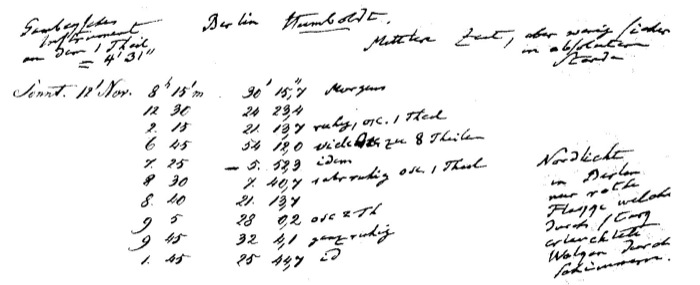 Gambeysches
Instrument
an dem 1 Theil
= 4' 31"
Berlin Humboldt.
Mittlere Zeit, aber wenig sicher
im absoluten
Stande
Sonnt. 12' Nov. 8h 15'm 30' 15,"7 Morgens
12 30 24 23,4
2. 15 21. 13,7 ruhig, osc. 1 Theil
6 45 54 12,0 viele zu 8 Theilen
7. 25 – 5. 52,3 idem
8 30 7. 40,7 sehr ruhig osc. 1 Theil
8. 40 21. 13,7
9 5 28 0,2 osc 2 Th
9 45 32 4,1 ganz ruhig
1. 45 25 44,7 id
Nordlicht
in Berlin
nur rothe
Flagge welche
durch
erleuchtete
Wolken durch
schimmern.